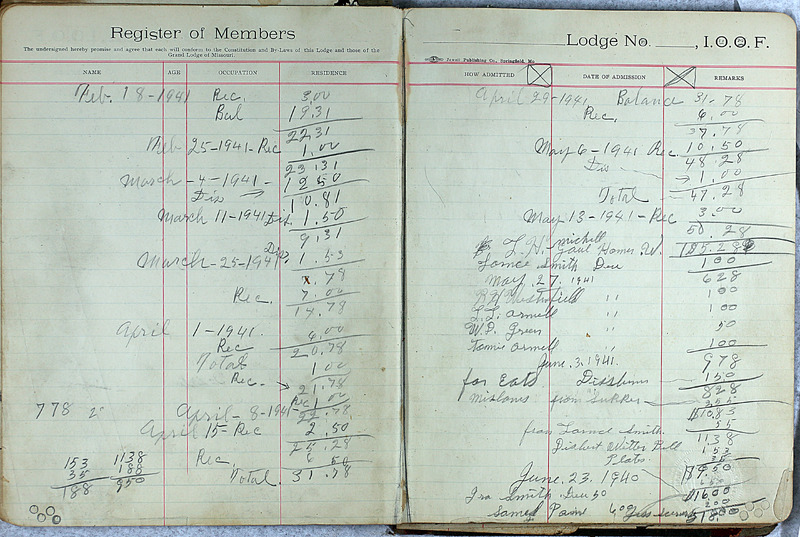 Register of Members
The undersigned hereby promise and agree that each will conform to the Constitution and By-Laws of this Lodge and those of the
Grand Lodge of Missouri.
NAME AGE OCCUPATION RESIDENCE
Feb. 18-1941 Rec. 3.00
Bal 19.31
22.31
Feb 25-1941-Rec 1.00
23.31
March -4-1941- 12.50
Dis 10.81
March 11-1941 Dis. 1.50
9.31
March-25-1941 Dis. 1.53
7.78
Rec. 7.00
14.78
April 1-1941. 6.00
Rec 20.78
Total 1.00
Rec. 21.78
Rec 1.00
778 April-8-1941 22.78
April 15-Rec 2.50
25.28
153 1138 Rec. 6.50
35 188 Total. 31.78
188 950
Lodge No. , I.O.O.F.
Publishing Co., Springfield, Mo.
HOW ADMITTED DATE OF ADMISSION REMARKS
April 29-1941 Balance 31.78
Rec. 6.00
37.78
May 6-1941 Rec. 10.50
48.28
Dis 1.00
Total 47.28
May 13-1941-Rec 3.00
50.28
L.H. michell
Homer W.
Tomie Smith Due 100
May 27. 1941 628
100
L.L. Armell " 100
W.P. Green " 50
Tomie Armell " 100
June. 3. 1941. 978
for Eats 150
828
from Supper 255
$10.83
from Tomie Smith. 55
1138
Bill 153
Plats. 35
$9.50
June. 23. 1940
Ira Smith Due 50 $1600
200
$18.00